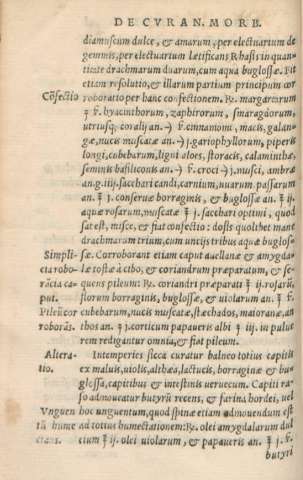 DE CVRAN. MORB.
diamuscum dulce, & amarum, per electuarium de
gemmis, per electuarium letificans Rhasis in quan-
titate drachmarum duarum, cum aqua buglossæ. Fit
etiam resolutio, & illarum partium principum cor
Cōfectio roboratio per hanc confectionem. ℞. margaritarum
hyacinthorum, zaphirorum, smaragdorum,
utriusq; coralij an. cinnamomi, macis, galan-
gæ, nucis muscatæ an. gariophyllorum, piperis
longi, cubebarum, ligni aloes, storacis, calaminthæ,
seminis basiliconis an. croci musci, ambræ
an. g. iiij. sacchari candi, carnium, nuarum passarum
an. ℥ j. conseruæ borraginis, & buglossæ an. ℥ ij.
aquæ rosarum, muscatæ ℥ j. sacchari optimi, quod
sat est, misce, & fiat confectio: dosis quolibet mane
drachmarum trium, cum uncijs tribus aquæ buglos-
Simpli- sæ. Corroborant etiam caput auellanæ & amygda-
cia robo- læ tostæ à cibo, & coriandrum præparatum, & se-
rātia ca- quens pileum: ℞. coriandri præparati ℥ ij. rosarū,
put. florum borraginis, buglossæ, & uiolarum an. ℥ ſ.
Pileū cor cubebarum, nucis muscatæ, stæchados, maioranæ, an
roborās. thos an. ʒ j. corticum papaueris albi ℥ iij. in pulue
rem redigantur omnia, & fiat pileum.
Altera- Intemperies sicca curatur balneo totius capitis
tio. ex maluis, uiolis, althæa, lactucis, borragine & bu
glossa, capitibus & intestinis ueruecum. Capiti ra-
so admoueatur butyrū recens, & farina hordei, uel
Vnguen hoc unguentum, quod spinæ etiam admouendum est
tū hume ad totius humectationem: ℞. olei amygdalarum dul
ctans. cium ℥ ij. olei uiolarum, & papaueris an. ℥ j. ſ.
butyri